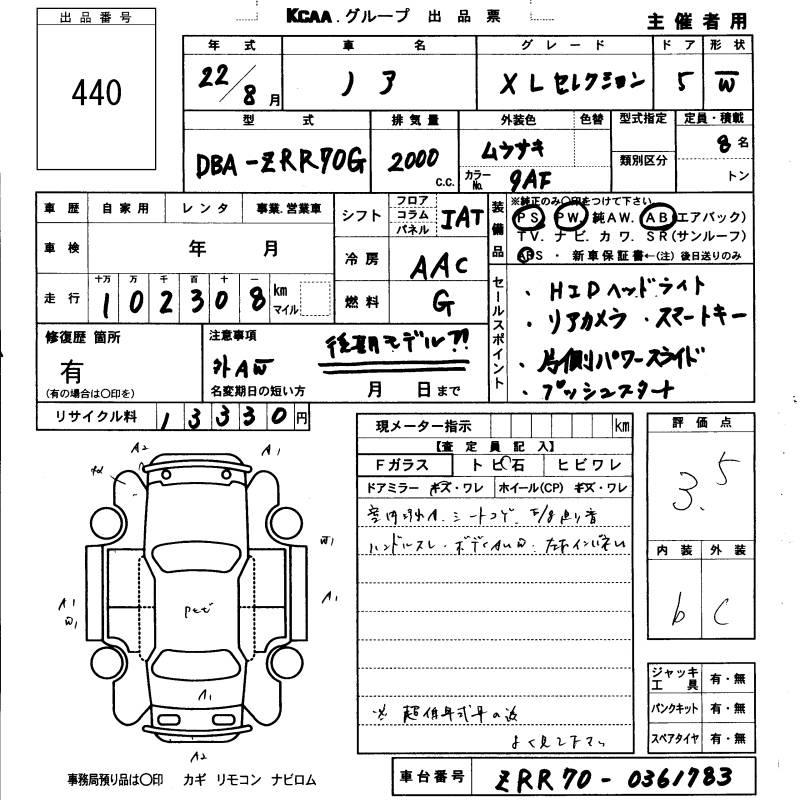 出品番号
440
KCAA.グループ 出品票
主催者用
年式 車名 グレード ドア 形状
22/8月 ノア X Lセレクション 5 W
型式 排気量 外装色 色替 型式指定 定員・積載
DBA-ZRR70G 2000 c.c. ムラサキ 8名
カラーNo. 9AF 類別区分 トン
車歴 自家用 レンタ 事業.営業車
車検 年 月
走行 十万 万 千 百 十 一
102308 km マイル
シフト フロア コラム パネル IAT
冷房 AAC
燃料 G
装備品
※純正のみ○印をつけて下さい
PS PW 純AW. AB(エアバック)
TV. ナビ. カワ. SR(サンルーフ)
ABS ・新車保証書←(注)後日送りのみ
セールスポイント
・HIDヘッドライト
・リアカメラ ・スマートキー
・片側パワースライド
・プッシュスタート
修復歴 箇所
有
(有の場合は○印を)
注意事項
後期モデル!!
外AW
名変期日の短い方 月 日まで
リサイクル料 13330円
現メーター指示 km
【査定員記入】
Fガラス トビ石 ヒビワレ
ドアミラー キズ・ワレ ホイール(CP) キズ・ワレ
ハンドルスレ・ボディAUW.
よく見て下さい
評価点
3.5
内装 外装
b C
ジャッキ工具 有・無
パンクキット 有・無
スペアタイヤ 有・無
A2
A1
W1
A1
A1
W1
A1
A2
事務局預り品は○印 カギ リモコン ナビロム
車台番号 ZRR70-0361783